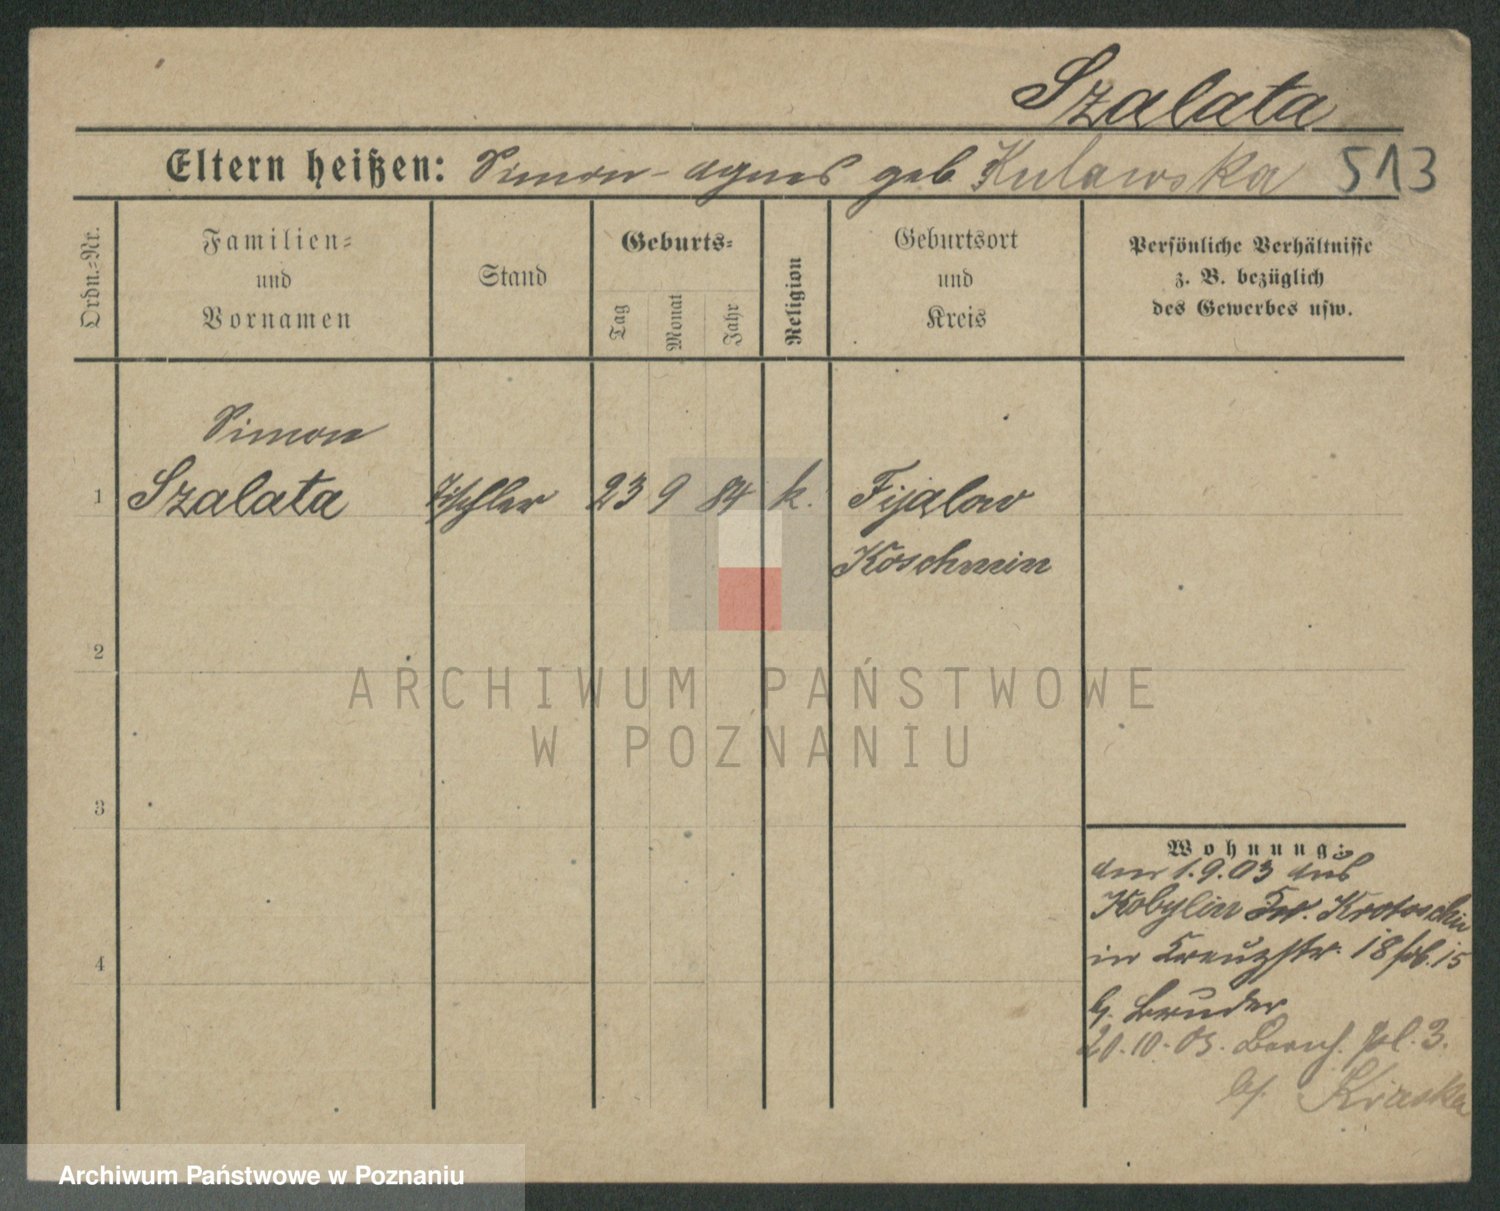 Szalata
Eltern heißen: Simon - Agnes geb Kulawska 513
Ordn.=Nr.
Familien=
und
Vornamen
Stand
Geburts=
Tag
Monat
Jahr
Religion
Geburtsort
und
Kreis
Persönliche Verhältnisse
z. B. bezüglich
des Gewerbes usw.
Simon
1 Szalata Tischler 23 9 84 k. Fijalow
Koschmin
2
ARCHIWUM PAŃSTWOWE
W POZNANIU
3
Wohnung:
den 1.9.03 aus
Kobylin Kr. Krotoschin
in Kreuzstr. 18 15
b. Bruder
20.10.03. Bernh. Pl. 3.
b. Kraska
4
Archiwum Państwowe w Poznaniu